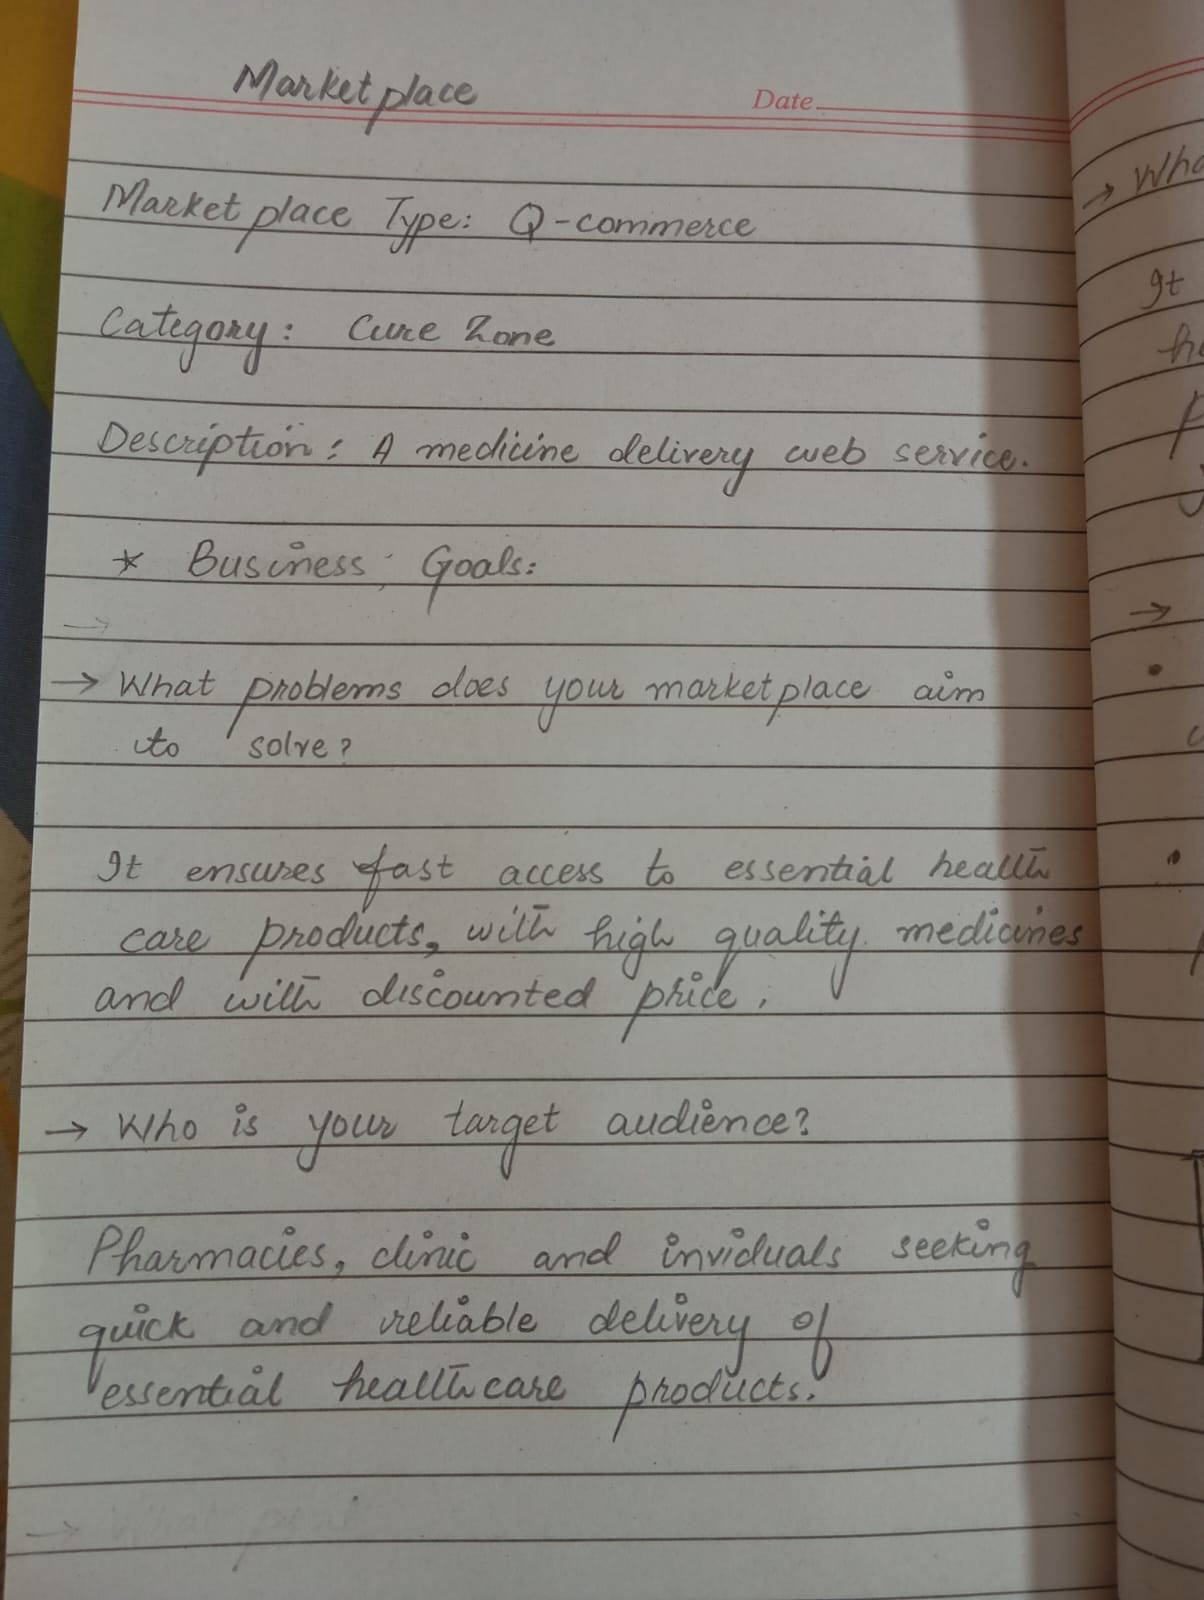 Marketplace
Date
Market place Type: Q-commerce
Category: Cure Zone
Description: A medicine delivery web service.
* Business Goals:
→ What problems does your marketplace aim
to solve?
It ensures fast access to essential health
care products, with high quality medicines
and with discounted price.
→ Who is your target audience?
Pharmacies, clinic and inviduals seeking
quick and reliable delivery of
essential healthcare products.
→
It
→